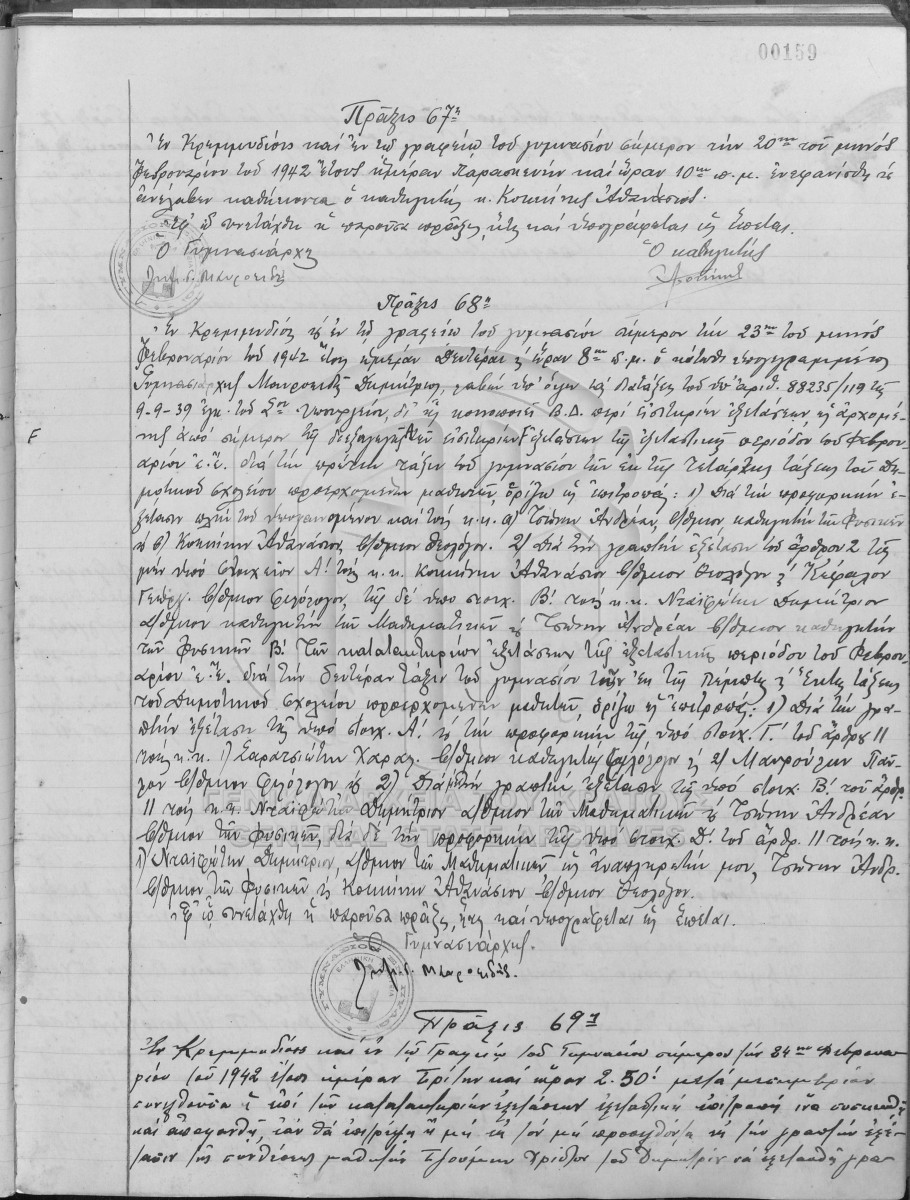 00159
Πρᾶξις 67η
Ἐν Κρεμμυδίοις καὶ ἐν τῷ γραφείῳ τοῦ γυμνασίου σήμερον τὴν 20ην τοῦ μηνὸς
Φεβρουαρίου τοῦ 1942 ἔτους ἡμέραν Παρασκευὴν καὶ ὥραν 10ην π.μ. ἐνεφανίσθη κ
ἀνέλαβεν καθήκοντα ὁ καθηγητὴς κ. Κοκκίνης Ἀθανάσιος.
Ἐφ' ᾧ συνετάχθη ἡ παροῦσα πρᾶξις, ἥτις καὶ ὑπογράφεται ὡς ἕπεται.
Ὁ Γυμνασιάρχης Ὁ καθηγητής
Πρᾶξις 68η
Ἐν Κρεμμυδίοις κ ἐν τῷ γραφείῳ τοῦ γυμνασίου σήμερον τὴν 23ην τοῦ μηνὸς
Φεβρουαρίου τοῦ 1942 ἔτους ἡμέραν Δευτέραν κ ὥραν 8ην π.μ. ὁ κάτωθι ὑπογεγραμμένος
Γυμνασιάρχης Μαυροειδῆς Δημήτριος, λαβὼν ὑπ' ὄψιν τὰς διατάξεις τοῦ ὑπ' ἀριθ. 88235/119 τῆς
9-9-39 ἐγκ. τοῦ Σοῦ Ὑπουργείου, δι' ἧς κοινοποιεῖ Β.Δ. περὶ εἰσιτηρίων ἐξετάσεων, κ ἀρχομέ-
νης ἀπὸ σήμερον τῆς διεξαγωγῆς Α τῶν εἰσιτηρίων ἐξετάσεων τῆς ἐξεταστικῆς περιόδου τοῦ Φεβρου-
F
αρίου ἔ.ἔ. διὰ τὴν πρώτην τάξιν τοῦ γυμνασίου τῶν ἐκ τῆς τετάρτης τάξεως τοῦ Δη-
μοτικοῦ σχολείου προερχομένων μαθητῶν, ὁρίζω ὡς ἐπιτροπάς: 1) Διὰ τὴν προφορικὴν ἐ-
ξέτασιν πλὴν τοῦ ὑποφαινομένου καὶ τοὺς κ.κ. α) Ἀνδρέαν, β/θμιον καθηγητὴν τῶν Φυσικῶν
κ β) Κοκκίνην Ἀθανάσιον β/θμιον θεολόγον. 2) Διὰ τὴν γραπτὴν ἐξέτασιν τοῦ ἄρθρου 2 τῆς
μὲν ὑπὸ στοιχεῖον Α' τοὺς κ.κ. Κοκκίνην Ἀθανάσιον β/θμιον θεολόγον κ Κέφαλον
Γεώργ. β/θμιον φιλόλογον, τῆς δὲ ὑπὸ στοιχ. Β' τοὺς κ.κ. Δημήτριον
α/θμιον καθηγητὴν τῶν Μαθηματικῶν κ Ἀνδρέαν β/θμιον καθηγητὴν
τῶν Φυσικῶν Β' Τῶν κατατακτηρίων ἐξετάσεων τῆς ἐξεταστικῆς περιόδου τοῦ Φεβρου-
αρίου ἔ.ἔ. διὰ τὴν δευτέραν τάξιν τοῦ γυμνασίου τῶν ἐκ τῆς Πέμπτης κ Ἕκτης τάξεως
τοῦ δημοτικοῦ σχολείου προερχομένων μαθητῶν, ὁρίζω ὡς ἐπιτροπάς: 1) Διὰ τὴν γρα-
πτὴν ἐξέτασιν τῆς ὑπὸ στοιχ. Α' κ τὴν προφορικὴν τῆς ὑπὸ στοιχ. Γ' τοῦ ἄρθρου 11
τοὺς κ.κ. 1) Χαράλ. β/θμιον καθηγητὴν φιλόλογον κ 2) Παῦ-
λον β/θμιον φιλόλογον κ 2) Διὰ τὴν γραπτὴν ἐξέτασιν τῆς ὑπὸ στοιχ. Β' τοῦ ἄρθρ.
11 τοὺς κ.κ. Δημήτριον α/θμιον τῶν Μαθηματικῶν κ Ἀνδρέαν
β/θμιον τῶν Φυσικῶν, διὰ δὲ τὴν προφορικὴν τῆς ὑπὸ στοιχ. Δ' τοῦ ἄρθρ. 11 τοὺς κ.κ.
1) Δημήτριον, α/θμιον τῶν Μαθηματικῶν ὡς ἀναπληρωτήν μου, Ἀνδρ.
β/θμιον τῶν Φυσικῶν κ Κοκκίνην Ἀθανάσιον β/θμιον θεολόγον.
Ἐφ' ᾧ συνετάχθη ἡ παροῦσα πρᾶξις, ἥτις καὶ ὑπογράφεται ὡς ἕπεται.
Ὁ Γυμνασιάρχης.
Μαυροειδῆς.
ΓΕΝΙΚΑ ΑΡΧΕΙΑ ΤΟΥ ΚΡΑΤΟΥΣ
GENERAL STATE ARCHIVES
Πρᾶξις 69η
Ἐν Κρεμμυδίοις καὶ ἐν τῷ Γραφείῳ τοῦ Γυμνασίου σήμερον τὴν 24ην Φεβρουα-
ρίου τοῦ 1942 ἔτους ἡμέραν Τρίτην καὶ ὥραν 2.50' μετὰ μεσημβρίαν
συνελθοῦσα ἡ ἐπὶ τῶν κατατακτηρίων ἐξετάσεων ἐξεταστικὴ ἐπιτροπὴ ἵνα συσκεφθῇ
καὶ ἀποφανθῇ, ἐὰν θὰ ἐπιτρέψῃ ἢ μὴ εἰς τὸν μὴ προσελθόντα εἰς τὴν γραπτὴν ἐξέ-
τασιν τῆς συνθέσεως μαθητὴν τοῦ Δημητρίου νὰ ἐξετασθῇ γρα-